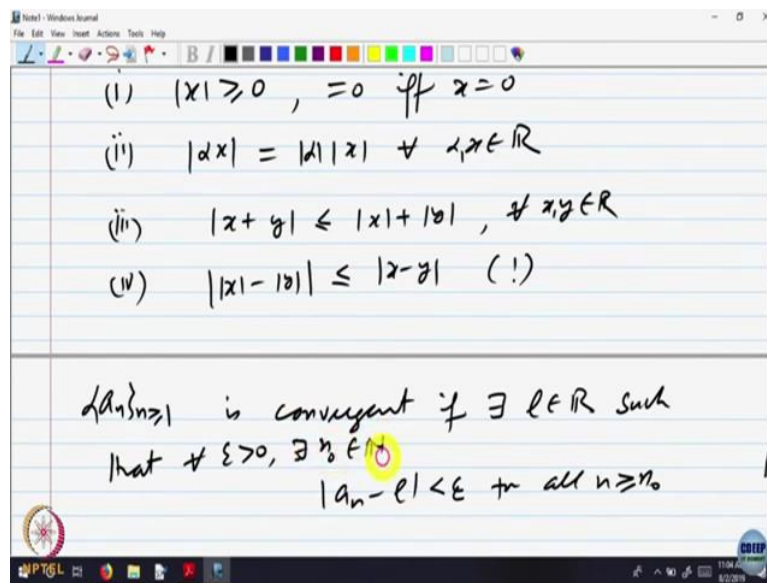 Note1 - Windows Journal
File Edit View Insert Actions Tools Help
B I
(i) |x| ≥ 0 , = 0 iff x = 0
(ii) |αx| = |α| |x| ∀ α, x ∈ ℝ
(iii) |x + y| ≤ |x| + |y| , ∀ x, y ∈ ℝ
(iv) ||x| - |y|| ≤ |x - y| (!)
{a_n}_{n≥1} is convergent if ∃ l ∈ ℝ such
that ∀ ε > 0, ∃ n_0 ∈ ℕ
|a_n - l| < ε for all n ≥ n_0
NPTEL
CDEEP
8/2/2019